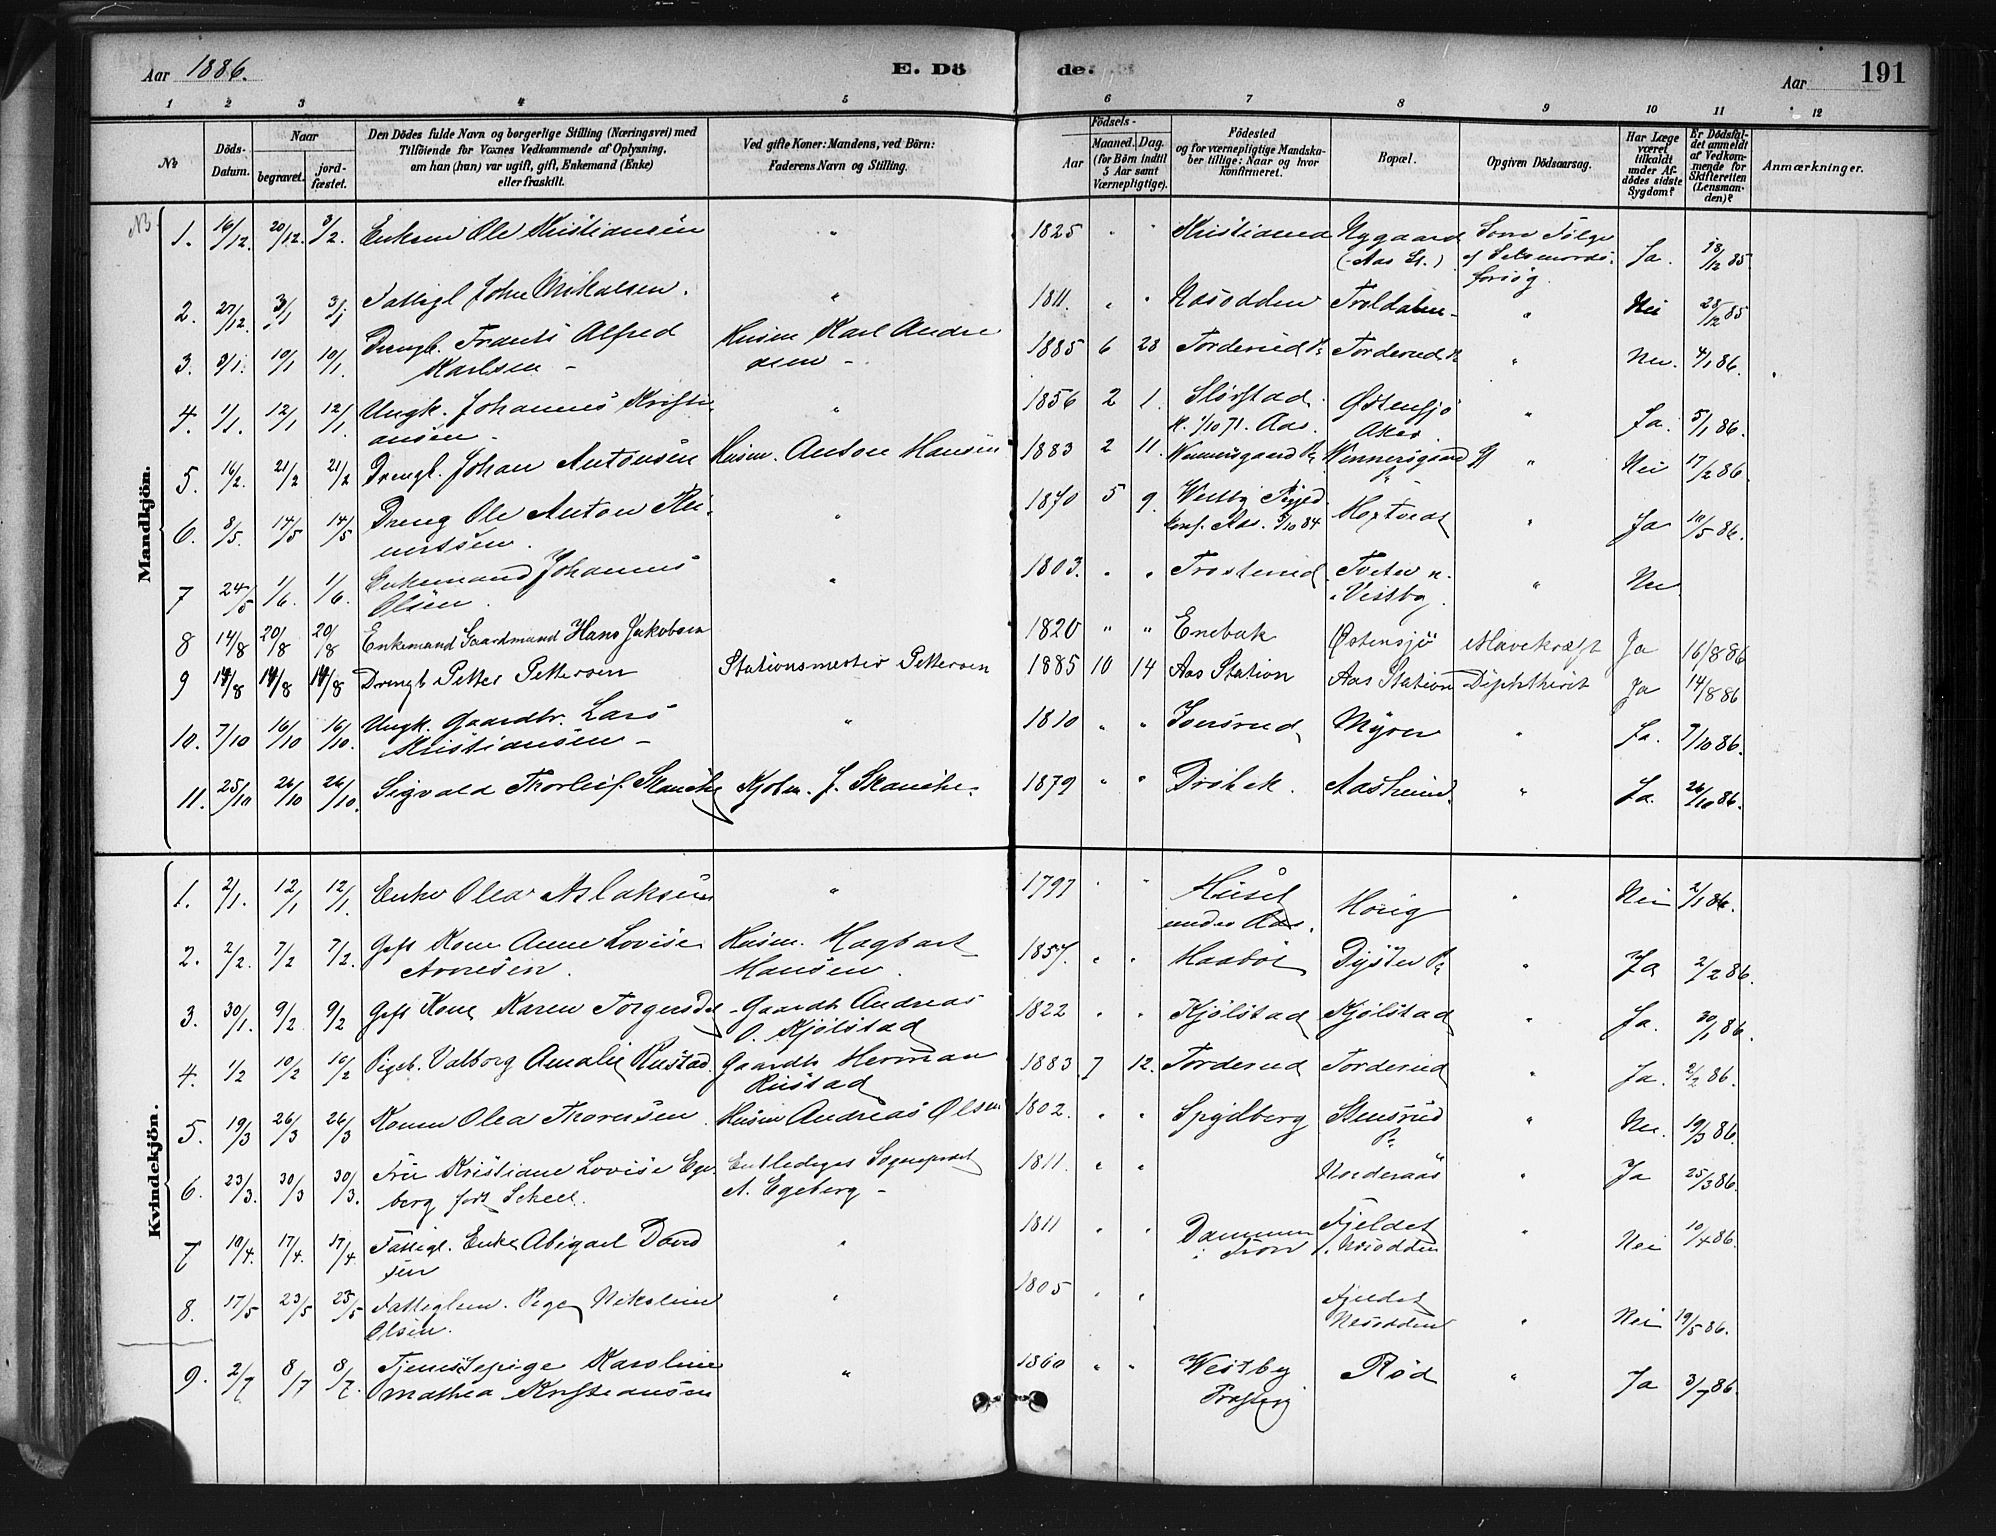 Aar 1886.
E. Dö
de.
Aar
191
1 2 3 4 5 6 7 8 9 10 11 12
No
Döds-Datum.
Naar
begravet.
jord-fæstet.
Den Dödes fulde Navn og borgerlige Stilling (Næringsvei) med
Tilföiende for Voxnes Vedkommende af Oplysning,
om han (hun) var ugift, gift, Enkemand (Enke)
eller fraskilt.
Ved gifte Koner: Mandens, ved Börn:
Faderens Navn og Stilling.
Födsels-
Aar
Maaned. Dag.
(for Börn indtil
5 Aar samt
Værnepligtige).
Födested
og for værnepligtige Mandska-
ber tillige: Naar og hvor
konfirmeret.
Bopæl.
Opgiven Dödsaarsag.
Har Læge
været
tilkaldt
under Af-
dödes sidste
Sygdom?
Er Dödsfal-
det anmeldt
af Vedkom-
mende for
Skifteretten
(Lensman-
den)?
Anmærkninger.
Mandkjön.
NB 1. 16/12. 20/12. 3/2. Enkem Ole Kristiansen " 1825 " " Kristiania Nygaard (Aas St.) Som Følge af Selvmords-forsøg. Ja. 18/12 85
2. 27/12. 3/1 3/1 Fattigl. Johan Mikalsen. " 1811. " " Nesodden Troldalen " Nei 28/12 85
3. 2/1. 10/1 10/1. Drengb. Frants Alfred Karlsen - Husm Karl Andreasen - 1885 6 28 Torderud Pl Torderud Pl " Nei. 4/1 86.
4. 1/1. 12/1 12/1. Ungk. Johannes Kristiansen - " 1856 2 1. Slørstad K. 1/10 71. Aas. Østensjø Aker. " Ja. 5/1 86.
5. 16/2. 21/2 21/2 Drengb. Johan Antonsen Husm. Anton Hansen 1883 2 11. Wennersgaard Pl Wennersgaard Pl " Nei 17/2 86
6. 8/5. 14/5 14/5 Dreng Ole Anton Reinertsen. " 1870 5 9. Vestby Prgjed. konf. Aas. 5/10 84 Hogtvedt " Ja 10/5 86.
7 24/5 1/6. 1/6. Enkemand Johannes Olsen. " 1803. " " Trosterud Tveter n. i Vestby. " Nei
8 14/8 20/8 20/8 Enkemand Gaardmand Hans Jakobsen 1820 " " Enebak Østensjö Mavekræft Ja 16/8 86
9 14/8 14/8 14/8 Drengb Petter Pettersen Stationsmester Pettersen 1885 10 14 Aas Station Aas Station Diphtherit Ja 14/8 86
10. 7/10 16/10 16/10. Ungk. Gaardbr. Lars Kristiansen - " 1810 " " Ionsrud Myrer " Ja. 7/10 86.
11. 25/10 26/10 26/10. Sigvald Thorleif Skanche Kjøbm. J. Skanche. 1879 " " Drøbak. Aasheim. " Ja. 26/10 86.
Kvindekjön.
1. 2/1. 12/1 12/1. Enke Olea Aslaksen " 1797 " " Huset under Aas. Horig " Nei 2/1 86.
2. 2/2. 7/2 7/2. Gift Kone Anne Lovise Arnesen. Husm. Hagbart Hansen. 1857. " " Haabøl Dyster Pl " Ja 2/2 86.
3. 30/1. 9/2 9/2 Gift Kone Karen Torgersd. Gaardb. Andreas O. Kjølstad 1822 " " Kjølstad Kjølstad " Ja. 30/1 86.
4. 1/2 10/2 10/2 Pigeb. Valborg Amalie Rustad. Gaardb. Herman Rustad 1883 7 12. Torderud Torderud " Ja. 2/2 86.
5. 19/3 26/3 26/3 Konen Olea Thoresen. Husm Andreas Olsen 1802. " " Spydberg Stensrud Pl " Nei. 19/3 86.
6. 23/3. 30/3 30/3. Fru Kristiane Lovise Egeberg født Scheel. Entlediges Sognepræst A. Egeberg - 1811. " " Norderaas " Ja 25/3 86.
7 10/4 17/4. 17/4. Fattigl. Enke Abigael Davidsen " 1811 " " Dammen i Fron Fjeldet i Nesodden " Nei 10/4 86.
8. 17/5 23/5 23/5 Fattiglem. Pige Nikoline Olsen. " 1805 " " Fjeldet Nesodden " Nei 19/5 86.
9. 2/7 8/7 8/7. Tjenestepige Karoline Mathea Kristiansen " 1860 " " Vestby Præstegj Rød " Ja 3/7 86.